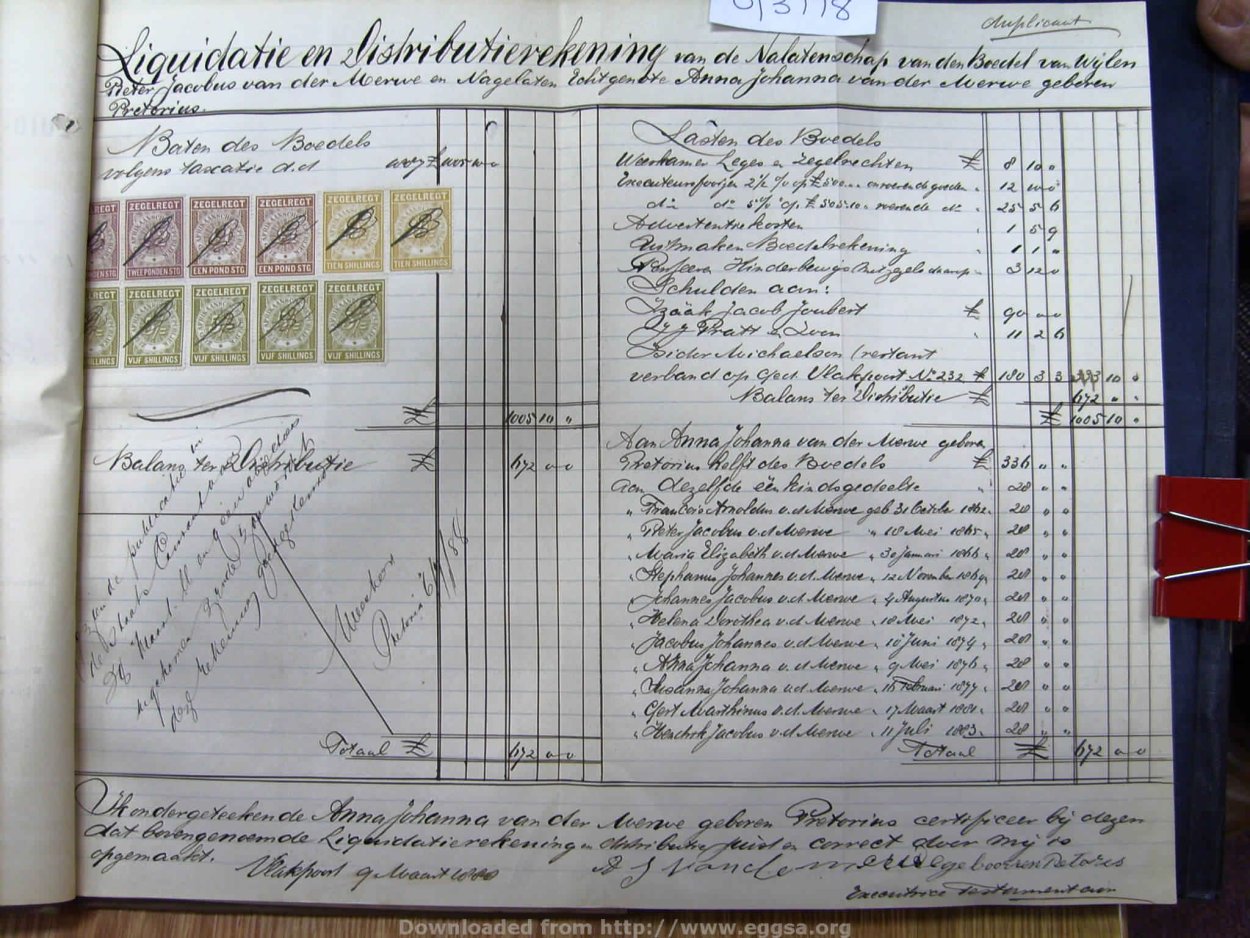 Duplicaat
Liquidatie en Distributierekening van de Nalatenschap van den Boedel van Wijlen
Pieter Jacobus van der Merwe en Nagelaten Echtgenote Anna Johanna van der Merwe geboren
Pretorius.
Baten des Boedels
volgens taxatie d.d £ 1005 10 0
ZEGELREGT ZEGELREGT ZEGELREGT ZEGELREGT ZEGELREGT
TWEE PONDEN STG EEN POND STG EEN POND STG TIEN SHILLINGS TIEN SHILLINGS
ZEGELREGT ZEGELREGT ZEGELREGT ZEGELREGT
VIJF SHILLINGS VIJF SHILLINGS VIJF SHILLINGS VIJF SHILLINGS
£ 1005 10 "
Balans ter Distributie £ 672 0 0
in de publicatie in
de Staats Courant
Pretoria
Totaal £ 672 0 0
Lasten des Boedels
Weeskamer Leges en Zegelrechten £ 8 10 0
Executeursloon 2½ % op £ 500 onroerende goederen " 12 10 0
do do 5 % op £ 505-10 roerende do " 25 5 6
Advertentiekosten " 1 5 9
Uitmaken Boedelrekening " 1 1 "
3 12 0
Schulden aan:
Izäak Jacob Joubert £ 90 0 0
J J Pratt & Zoon " 11 2 6
Isidor Michaelson (restant
verband op Ged. Vlakpoort No 232 £ 180 3 3 333 10 0
Balans ter Distributie £ 672 " "
£ 1005 10 "
Aan Anna Johanna van der Merwe geboren
Pretorius helft des Boedels £ 336 " "
aan dezelfde één kindsgedeelte " 28 " "
" Francois Arnoldus v.d. Merwe geb 31 October 1862 " 28 " "
" Pieter Jacobus v.d. Merwe " 18 Mei 1865 " 28 " "
" Maria Elizabeth v.d. Merwe " 30 Januari 1866 " 28 " "
" Stephanus Johannes v.d. Merwe " 12 November 1869 " 28 " "
" Johannes Jacobus v.d. Merwe " 4 Augustus 1870 " 28 " "
" Helena Dorothea v.d. Merwe " 18 Mei 1872 " 28 " "
" Jacobus Johannes v.d. Merwe " 10 Juni 1874 " 28 " "
" Anna Johanna v.d. Merwe " 9 Mei 1876 " 28 " "
" Susanna Johanna v.d. Merwe " 16 Februari 1877 " 28 " "
" Gert Marthinus v.d. Merwe " 17 Maart 1881 " 28 " "
" Hendrik Jacobus v.d. Merwe " 11 Juli 1883 " 28 " "
Totaal £ 672 0 0
Ik ondergeteekende Anna Johanna van der Merwe geboren Pretorius certificeer bij dezen
dat bovengenoemde Liquidatierekening en distributie juist en correct door mij is
opgemaakt.
Vlakpoort 9 Maart 1888
Executrice Testamentair
Downloaded from http://www.eggsa.org